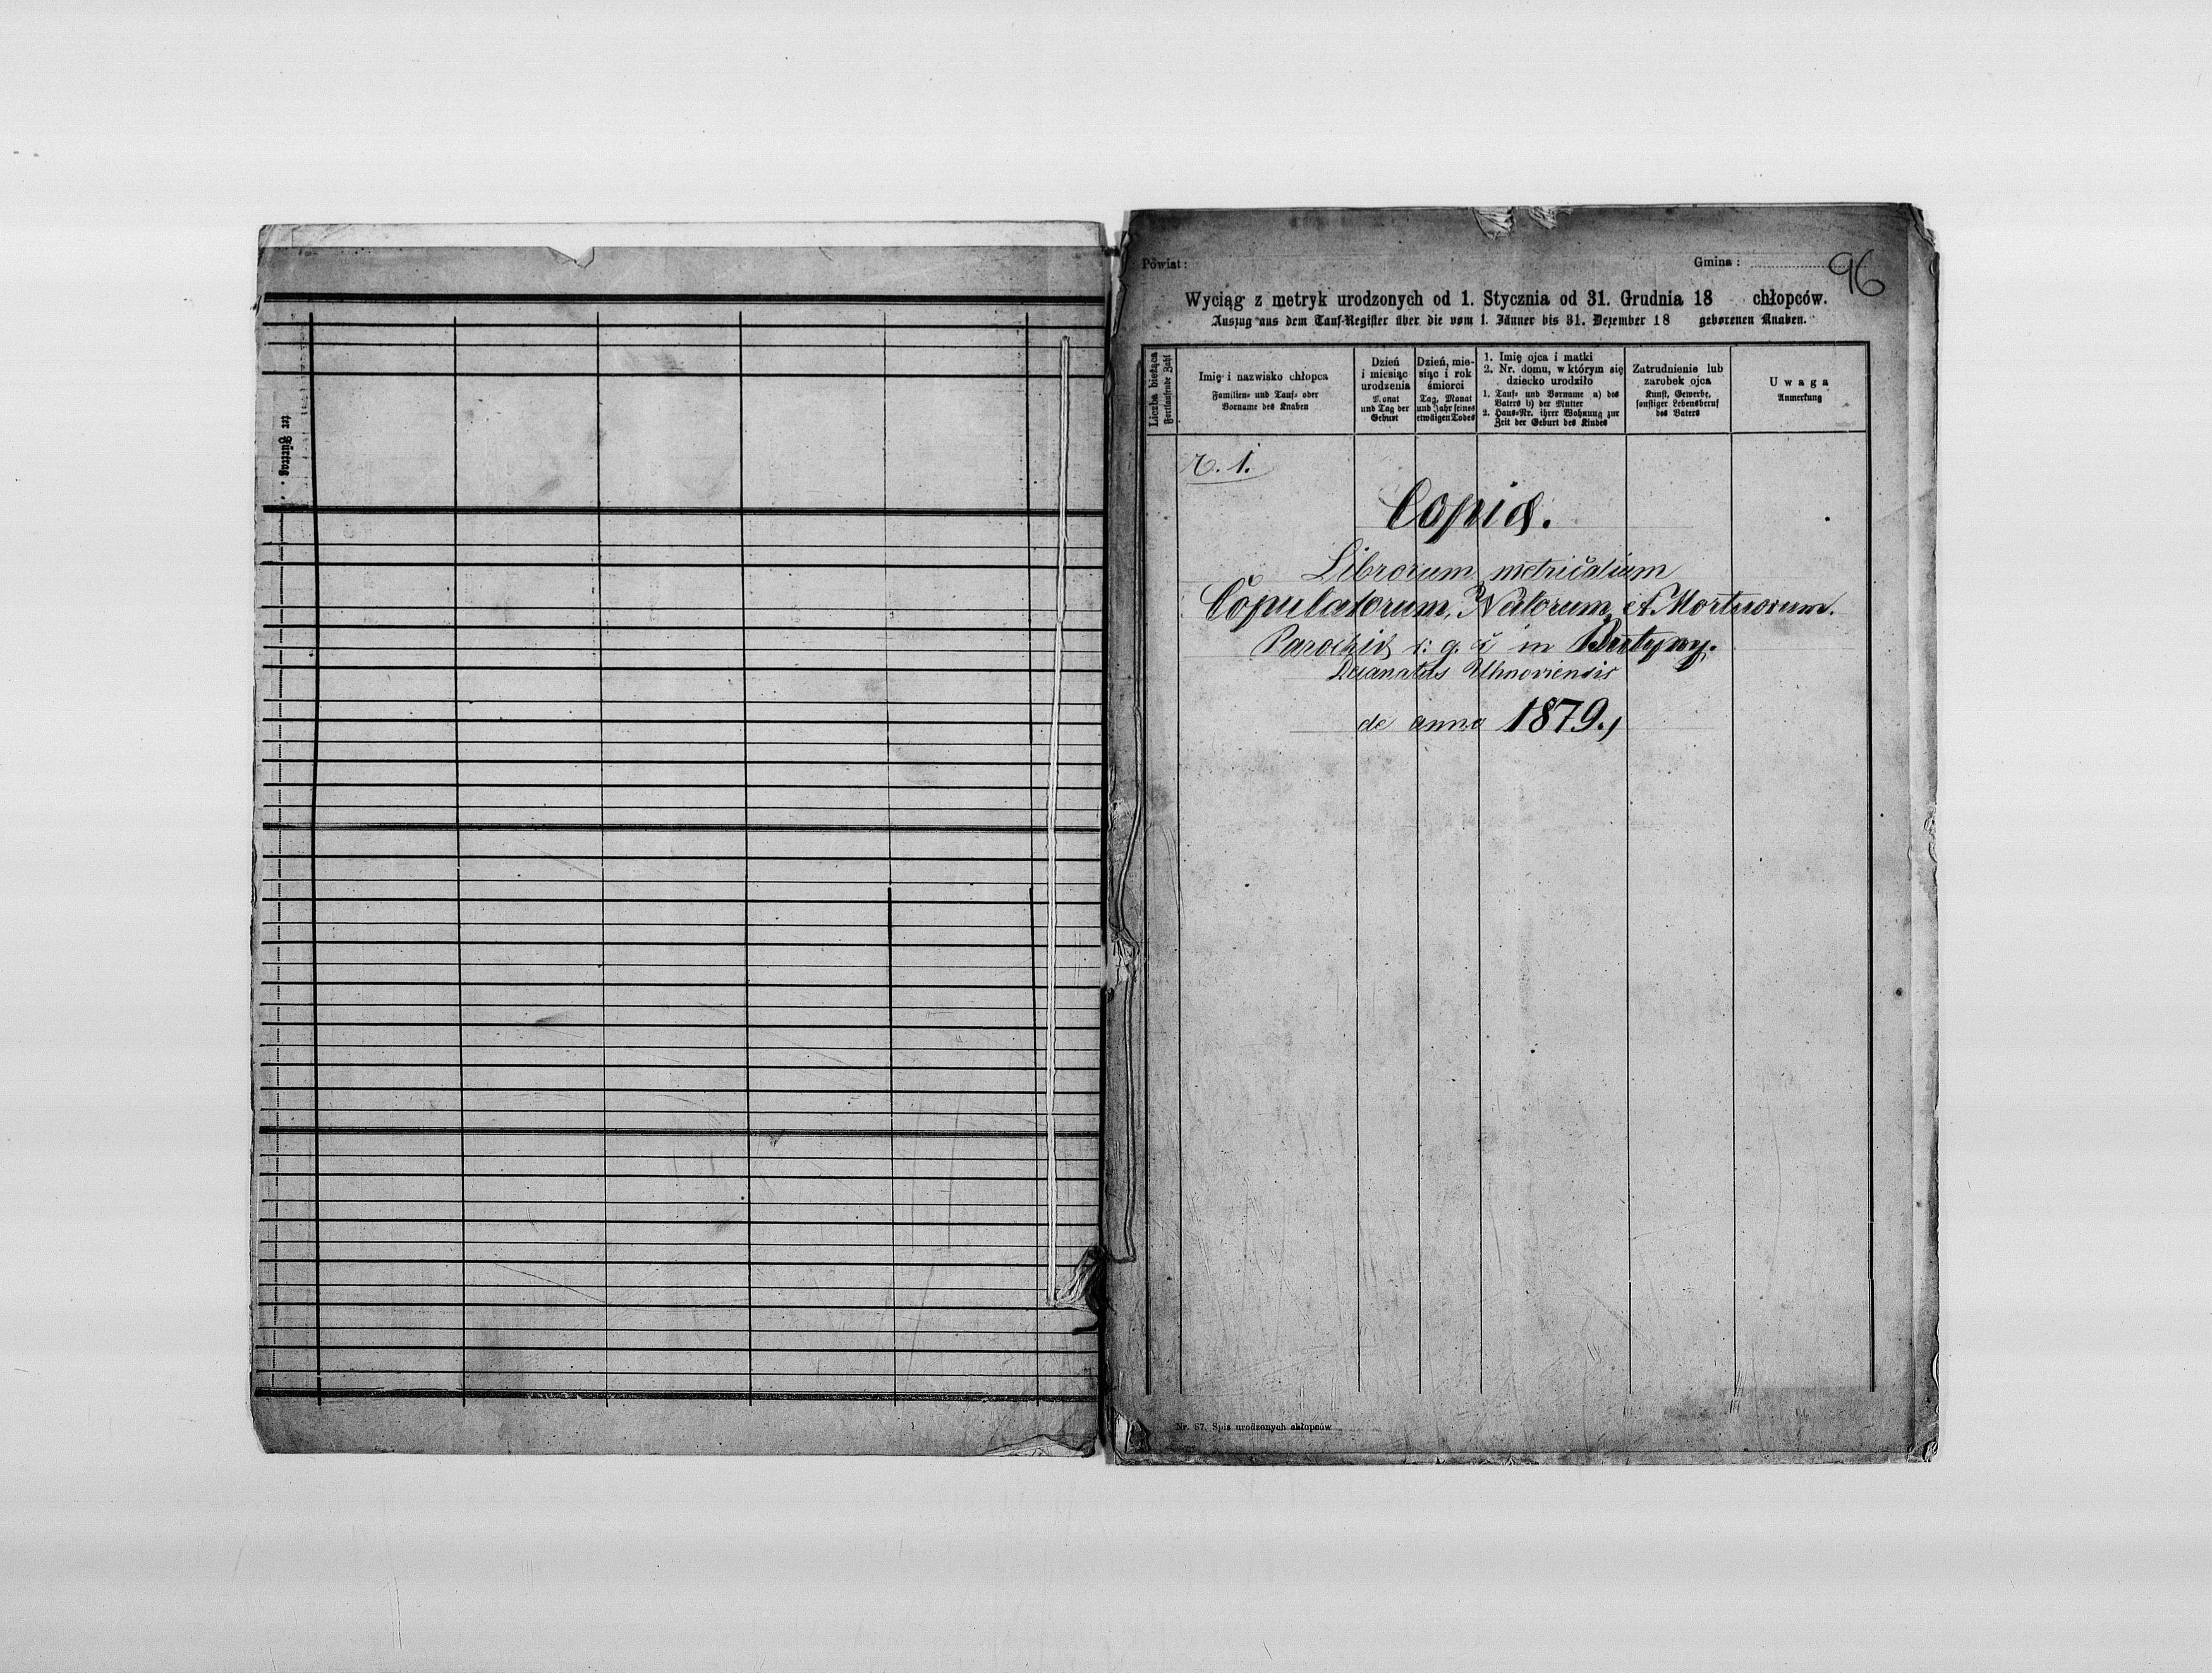 ter Fürtrag .
96
Powiat :
Gmina :
Wyciąg z metryk urodzonych od 1. Stycznia od 31. Grudnia 18 chłopców.
Auszug aus dem Tauf-Register über die vom 1. Jänner bis 31. Dezember 18 geborenen Knaben.
Liczba bieżąca
Fortlaufende Zahl
Imię i nazwisko chłopca
Familien- und Tauf- oder
Vorname des Knaben
Dzień
i miesiąc
urodzenia
Monat
und Tag der
Geburt
Dzień, mie-
siąc i rok
śmierci
Tag, Monat
und Jahr seines
etwaigen Todes
1. Imię ojca i matki
2. Nr. domu, w którym się
dziecko urodziło
1. Tauf- und Vorname a) des
Vaters b) der Mutter
2. Haus-Nr. ihrer Wohnung zur
Zeit der Geburt des Kindes
Zatrudnienie lub
zarobek ojca
Kunst, Gewerbe,
sonstiger Lebensberuf
des Vaters
Uwaga
Anmerkung
Copia.
Librorum metricalium
Copulatorum, Natorum et Mortuorum.
Parochia r: g. c in Butyny.
Decanatus Uhnoviensis
de anno 1879.,
Nr. 67. Spis urodzonych chłopców